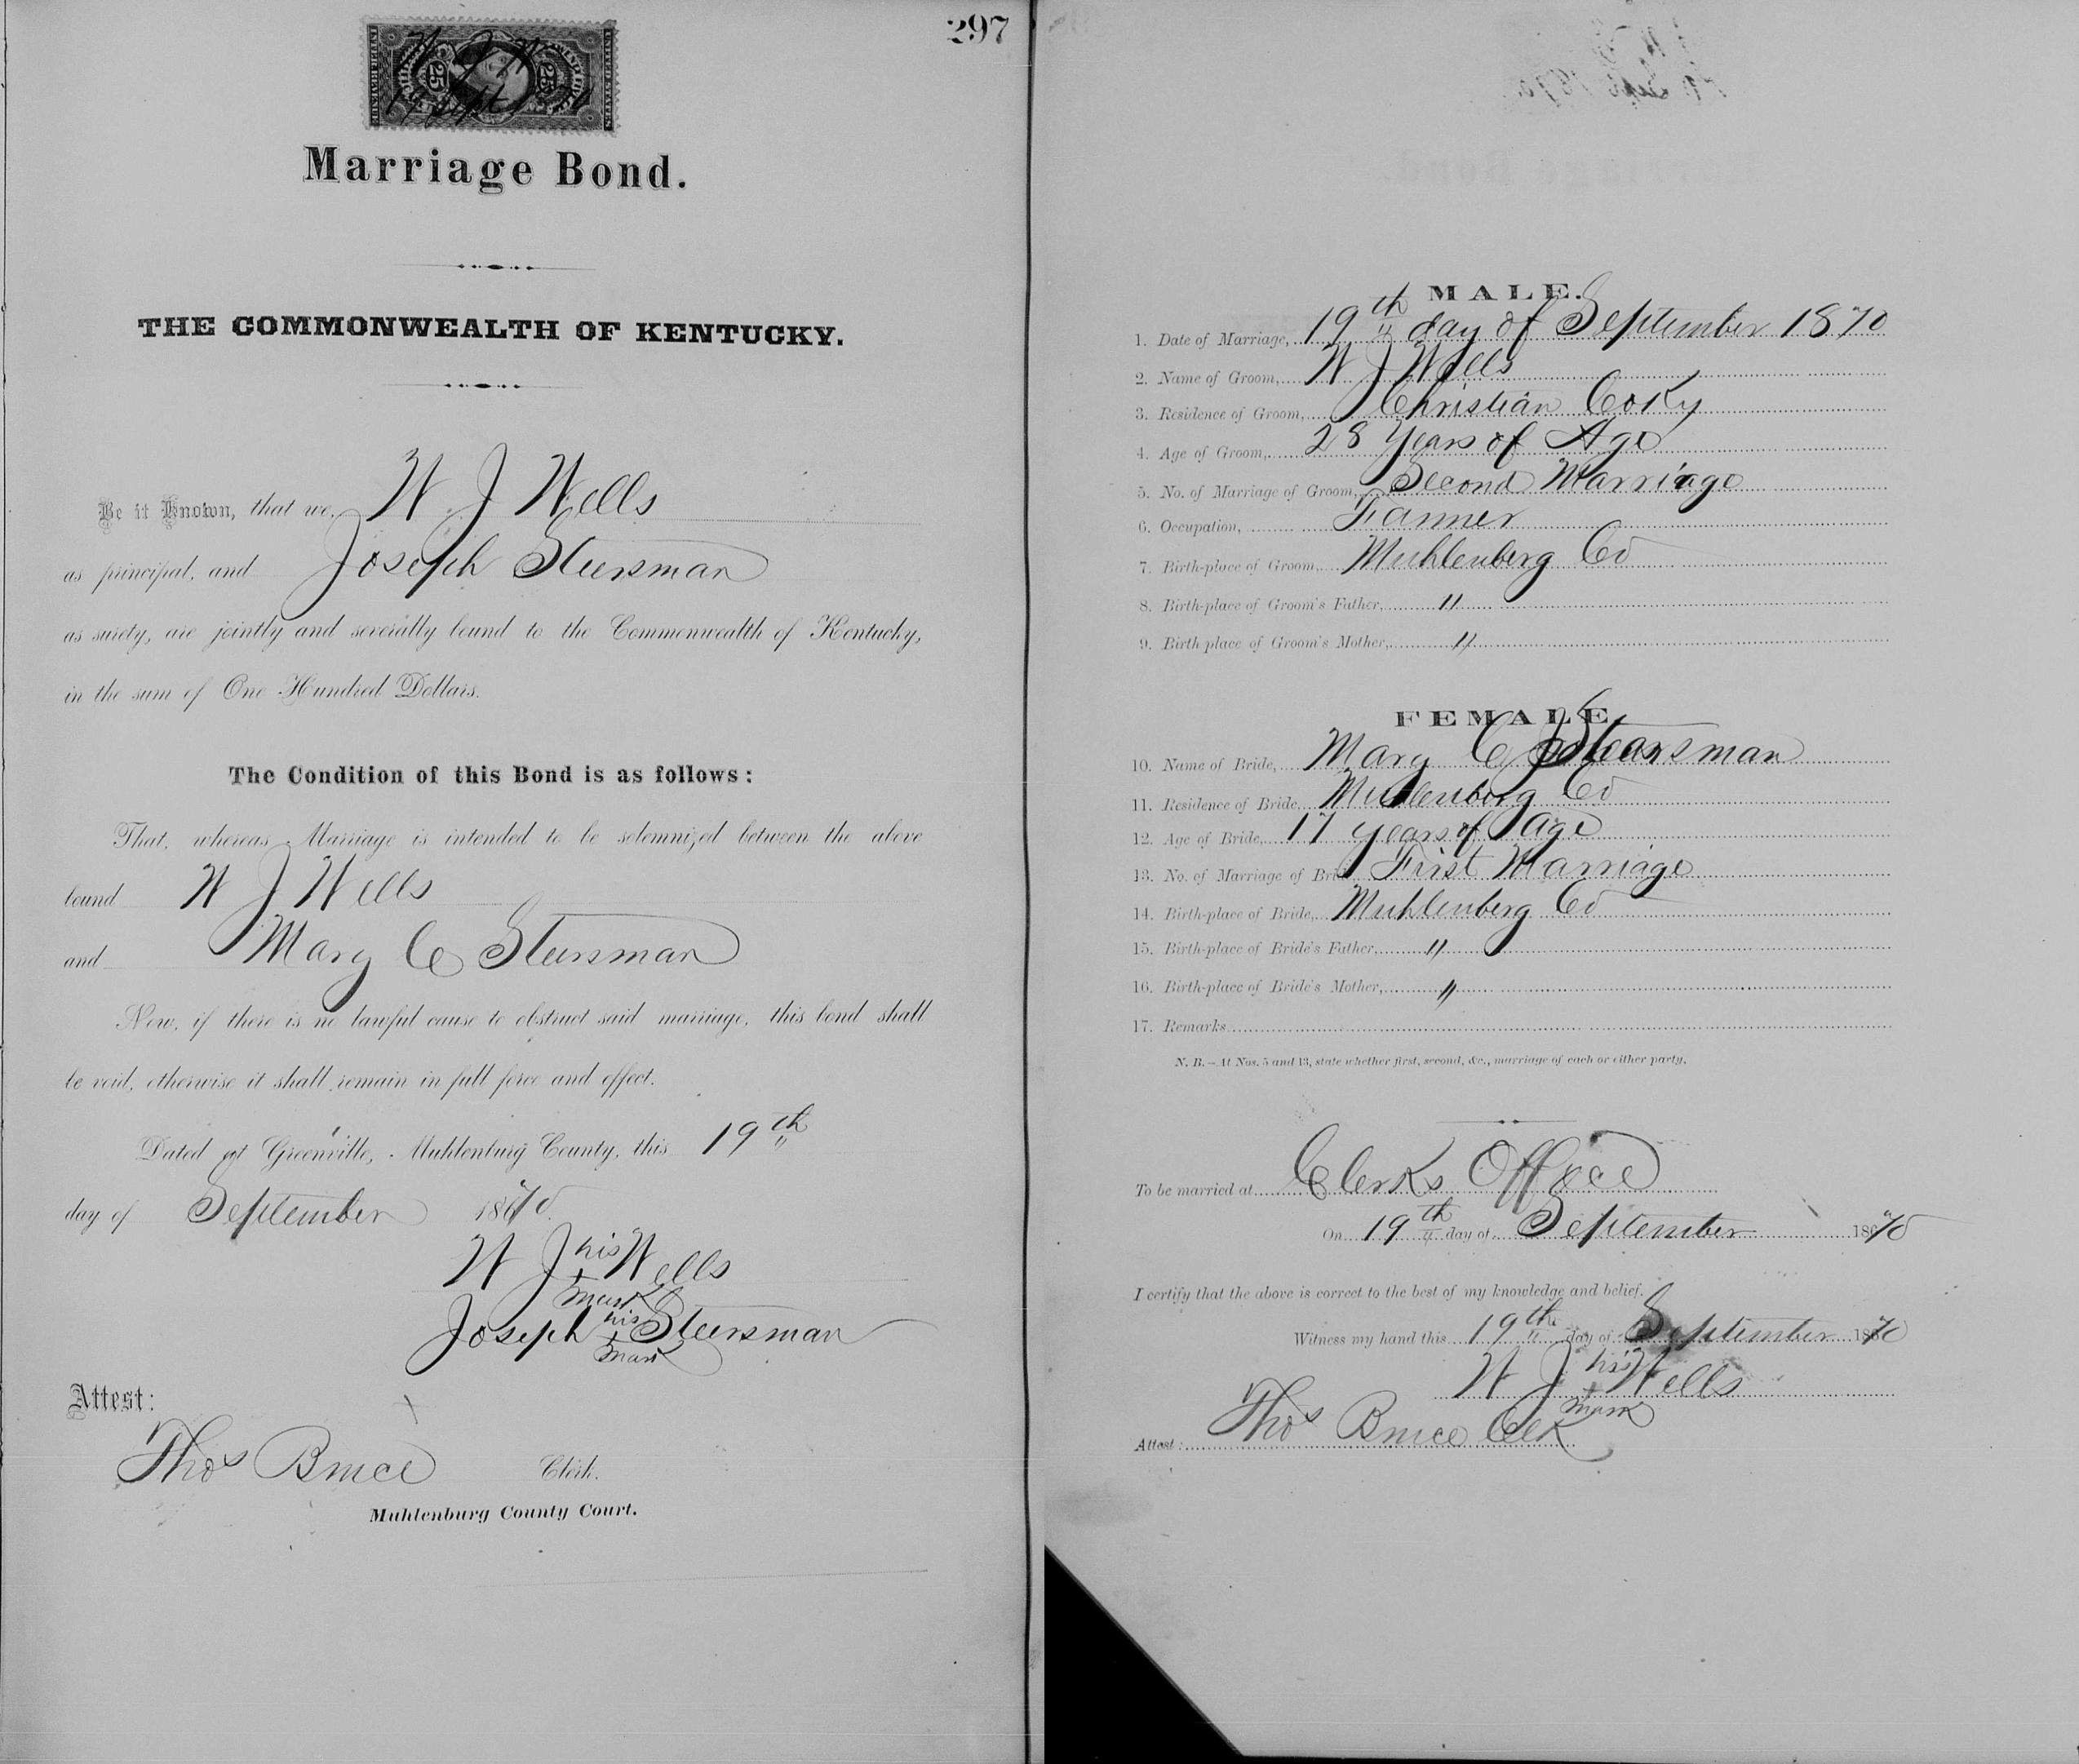 297
W J W
25 25
19 Sept
Marriage Bond.
THE COMMONWEALTH OF KENTUCKY.
Be it Known, that we, W J Wells
as principal, and Joseph Steersman
as surety, are jointly and severally bound to the Commonwealth of Kentucky,
in the sum of One Hundred Dollars.
The Condition of this Bond is as follows:
That, whereas Marriage is intended to be solemnized between the above
bound W J Wells
and Mary C Steersman
Now, if there is no lawful cause to obstruct said marriage, this bond shall
be void, otherwise it shall remain in full force and effect.
Dated at Greenville, Muhlenburg County, this 19th
day of September 1870.
W J his Wells
+
mark
Joseph his Steersman
+
mark
Attest:
Thos Bruce Clerk.
Muhlenburg County Court.
MALE.
1. Date of Marriage, 19th day of September 1870
2. Name of Groom, W J Wells
3. Residence of Groom, Christian Co Ky
4. Age of Groom, 28 Years of Age
5. No. of Marriage of Groom, Second Marriage
6. Occupation, Farmer
7. Birth-place of Groom, Muhlenberg Co
8. Birth-place of Groom's Father, "
9. Birth place of Groom's Mother, "
FEMALE
10. Name of Bride, Mary C Stearsman
11. Residence of Bride, Muhlenberg Co
12. Age of Bride, 17 years of Age
13. No. of Marriage of Bride, First Marriage
14. Birth-place of Bride, Muhlenberg Co
15. Birth-place of Bride's Father, "
16. Birth-place of Bride's Mother, "
17. Remarks
N. B.—At Nos. 5 and 13, state whether first, second, &c., marriage of each or either party.
To be married at Clerks Office
On 19th day of September 1870
I certify that the above is correct to the best of my knowledge and belief.
Witness my hand this 19th day of September 1870
W J his Wells
+
mark
Attest: Thos Bruce Clk